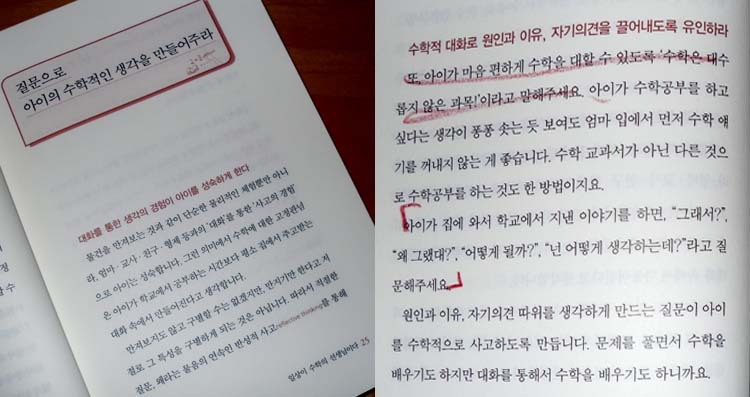 질문으로
아이의 수학적인 생각을 만들어주라
대화를 통한 생각의 경험이 아이를 성숙하게 한다
물건을 만져보는 것과 같이 단순한 물리적인 체험뿐만 아니
라, 엄마·교사·친구·형제 등과의 '대화'를 통한 '사고의 경험'
으로 아이는 성숙합니다. 그런 의미에서 수학에 대한 고정관념
은 아이가 학교에서 공부하는 시간보다 평소 집에서 주고받는
대화 속에서 만들어진다고 생각합니다.
만져보지도 않고 구별할 수는 없겠지만, 만지기만 한다고 저
절로 그 특성을 구별하게 되는 것은 아닙니다. 따라서 적절한
질문, 왜라는 물음의 연속인 반성적 사고reflective thinking를 통해
일상이 수학의 선생님이다 25
수학적 대화로 원인과 이유, 자기의견을 끌어내도록 유인하라
또, 아이가 마음 편하게 수학을 대할 수 있도록 '수학은 대수
롭지 않은 과목!'이라고 말해주세요. 아이가 수학공부를 하고
싶다는 생각이 퐁퐁 솟는 듯 보여도 엄마 입에서 먼저 수학 얘
기를 꺼내지 않는 게 좋습니다. 수학 교과서가 아닌 다른 것으
로 수학공부를 하는 것도 한 방법이지요.
아이가 집에 와서 학교에서 지낸 이야기를 하면, "그래서?",
"왜 그랬대?", "어떻게 될까?", "넌 어떻게 생각하는데?"라고 질
문해주세요.
원인과 이유, 자기의견 따위를 생각하게 만드는 질문이 아이
를 수학적으로 사고하도록 만듭니다. 문제를 풀면서 수학을
배우기도 하지만 대화를 통해서 수학을 배우기도 하니까요.